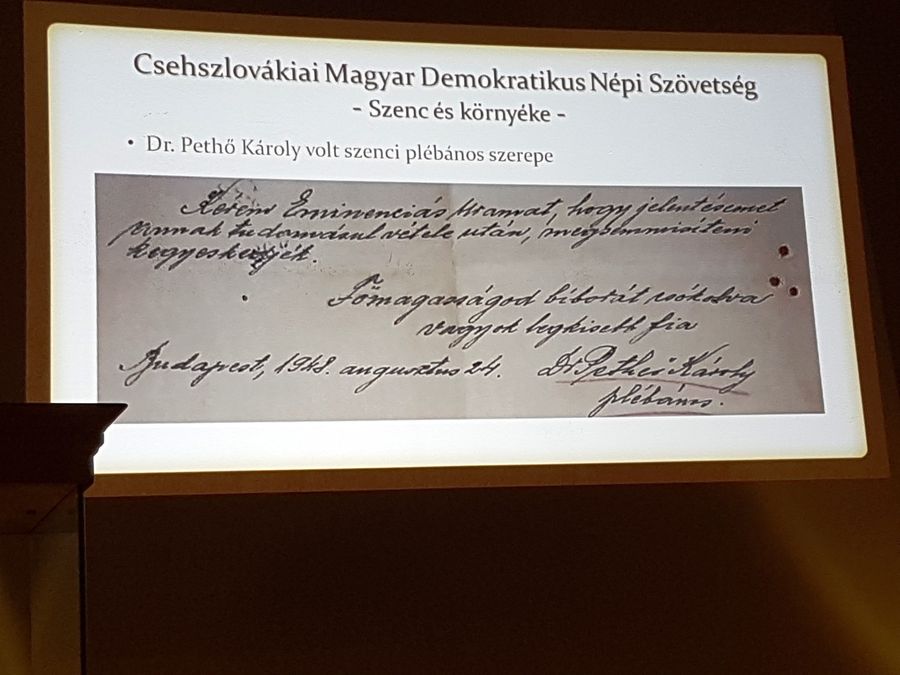 Csehszlovákiai Magyar Demokratikus Népi Szövetség
- Szenc és környéke -
• Dr. Pethő Károly volt szenci plébános szerepe
Kérem Eminenciás Uramat, hogy jelentésemet
annak tudomásul vétele után, megsemmisíteni
kegyeskedjék.
Főmagasságod bíborát csókolva
vagyok legkisebb fia
Budapest, 1948. augusztus 24. Dr Pethő Károly
plébános.